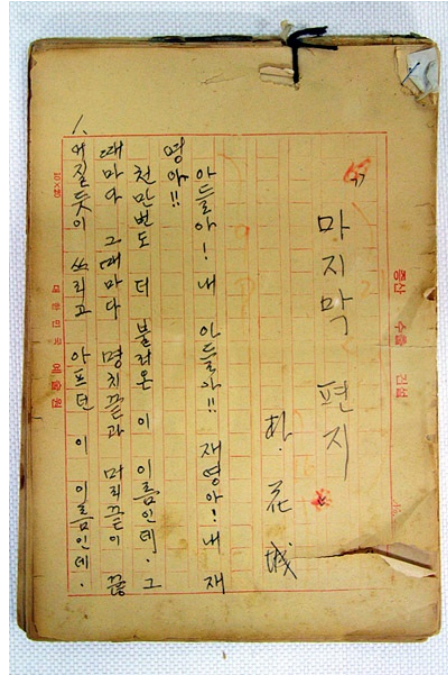 증산 수출 건설
마지막 편지
朴花城
아들아! 내 아들아!! 재영아! 내 재
영아!!
천만번도 더 불러온 이 이름인데. 그
때마다 그때마다 명치끝과 머리끝이 끊
어질듯이 쓰리고 아프던 이 이름인데.
1.
10×20 대한민국 예술원